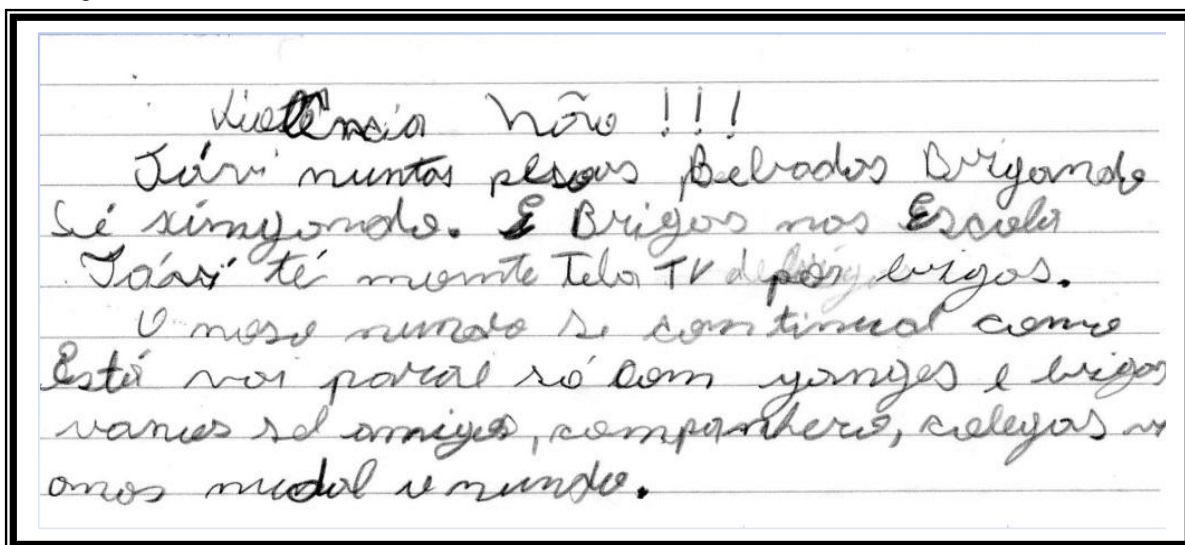 Violência Não !!!
Já vi muntas pesoas Bebados Brigando
Sé xingando. E Brigas nas Escola
Já vi té momte Tela TV por brigas.
O noso mundo se continual como
Está vai paral só com ganges e brigas
vamos sel amigos, companhero, colegas v
amos mudal o mundo.